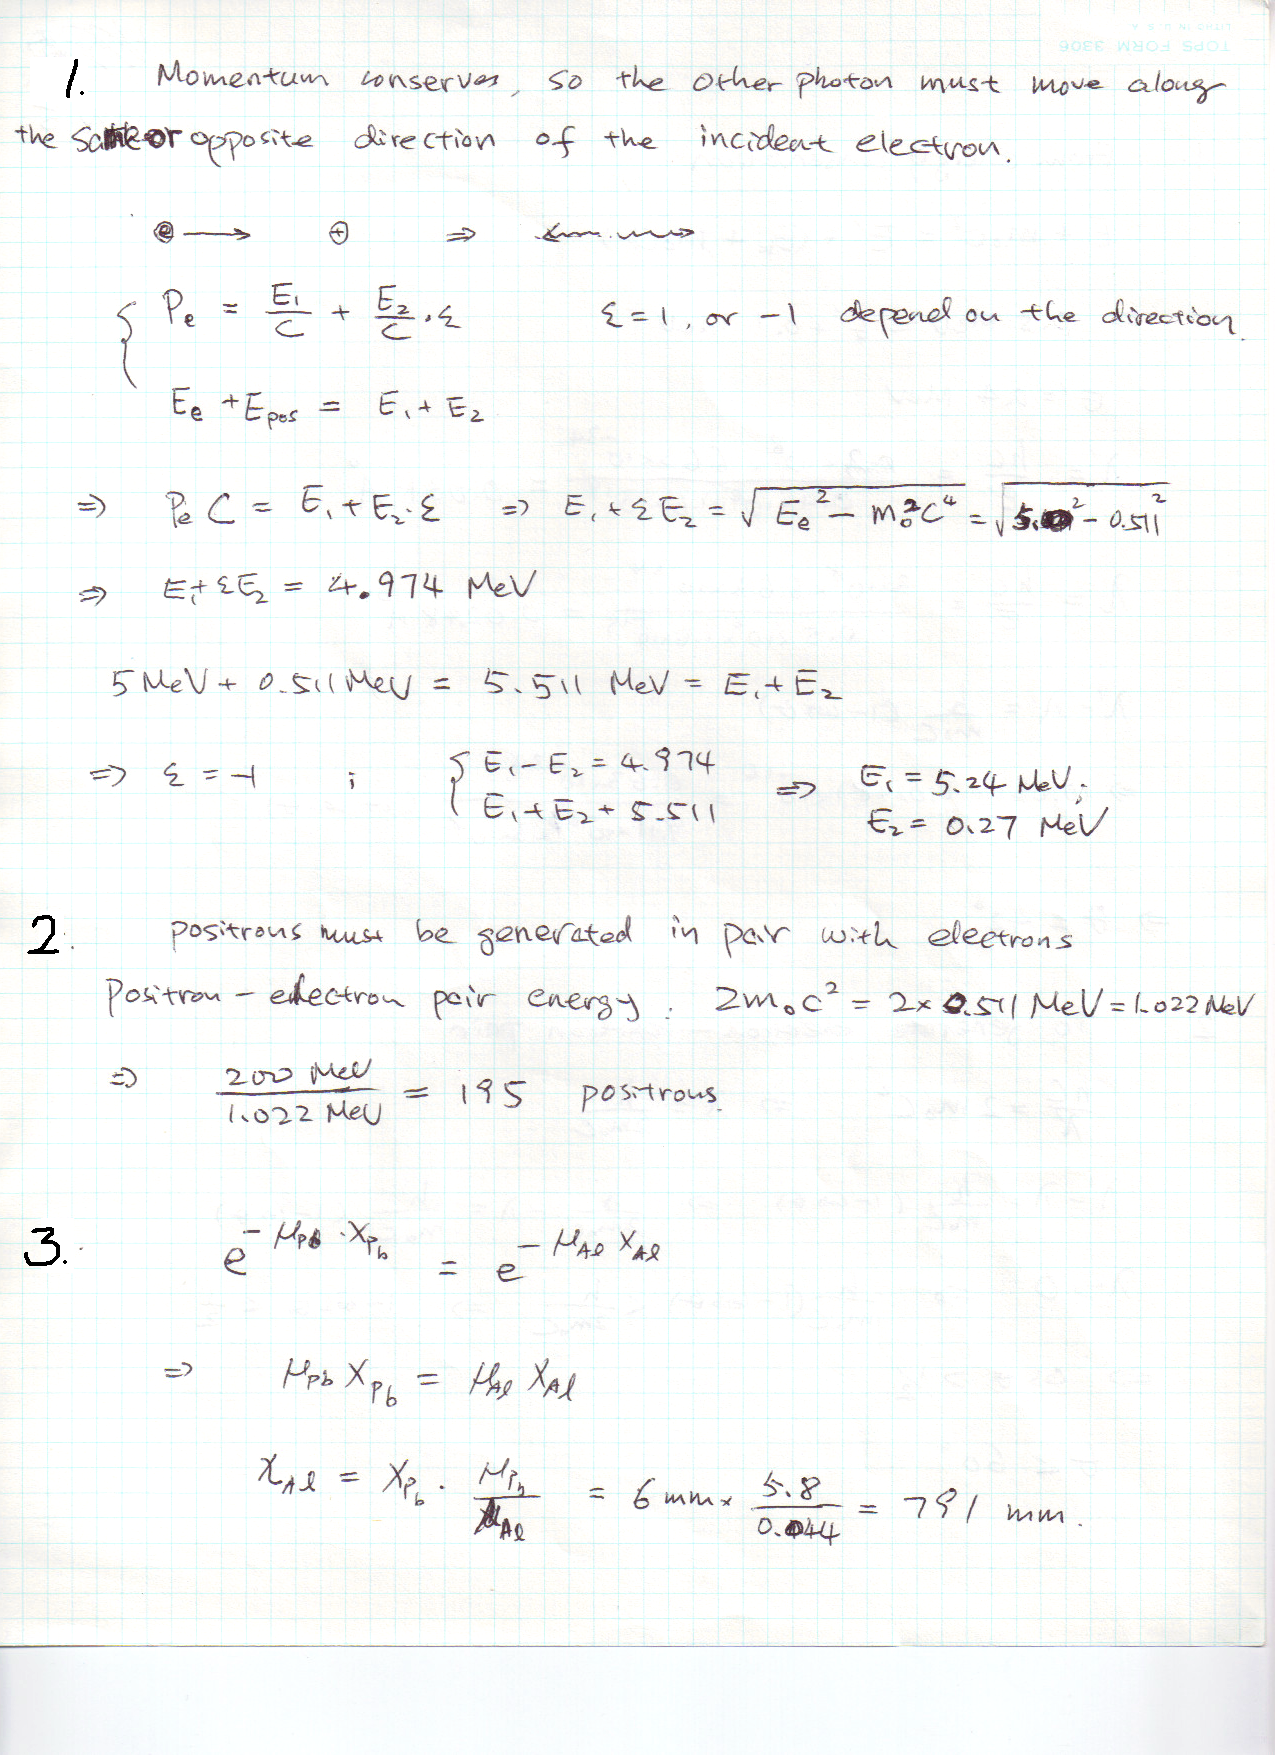 TOPS FORM 3306
1. Momentum conserves, so the other photon must move along
the same or opposite direction of the incident electron.
e → + ⇒
Pe = E1/C + E2/C · ε ε = 1, or -1 depend on the direction.
Ee + Epos = E1 + E2
⇒ Pe C = E1 + E2 · ε ⇒ E1 + εE2 = √(Ee² - m0²C⁴) = √(5.0² - 0.511²)
⇒ E1 + εE2 = 4.974 MeV
5 MeV + 0.511 MeV = 5.511 MeV = E1 + E2
⇒ ε = -1 ; { E1 - E2 = 4.974 ⇒ E1 = 5.24 MeV;
E1 + E2 + 5.511 E2 = 0.27 MeV
2. positrons must be generated in pair with electrons
Positron - electron pair energy. 2m0C² = 2× 0.511 MeV = 1.022 MeV
⇒ 200 MeV / 1.022 MeV = 195 positrons.
3. e^(-μPb · XPb) = e^(-μAl XAl)
⇒ μPb XPb = μAl XAl
XAl = XPb · μPb/μAl = 6 mm × 5.8/0.044 = 791 mm.